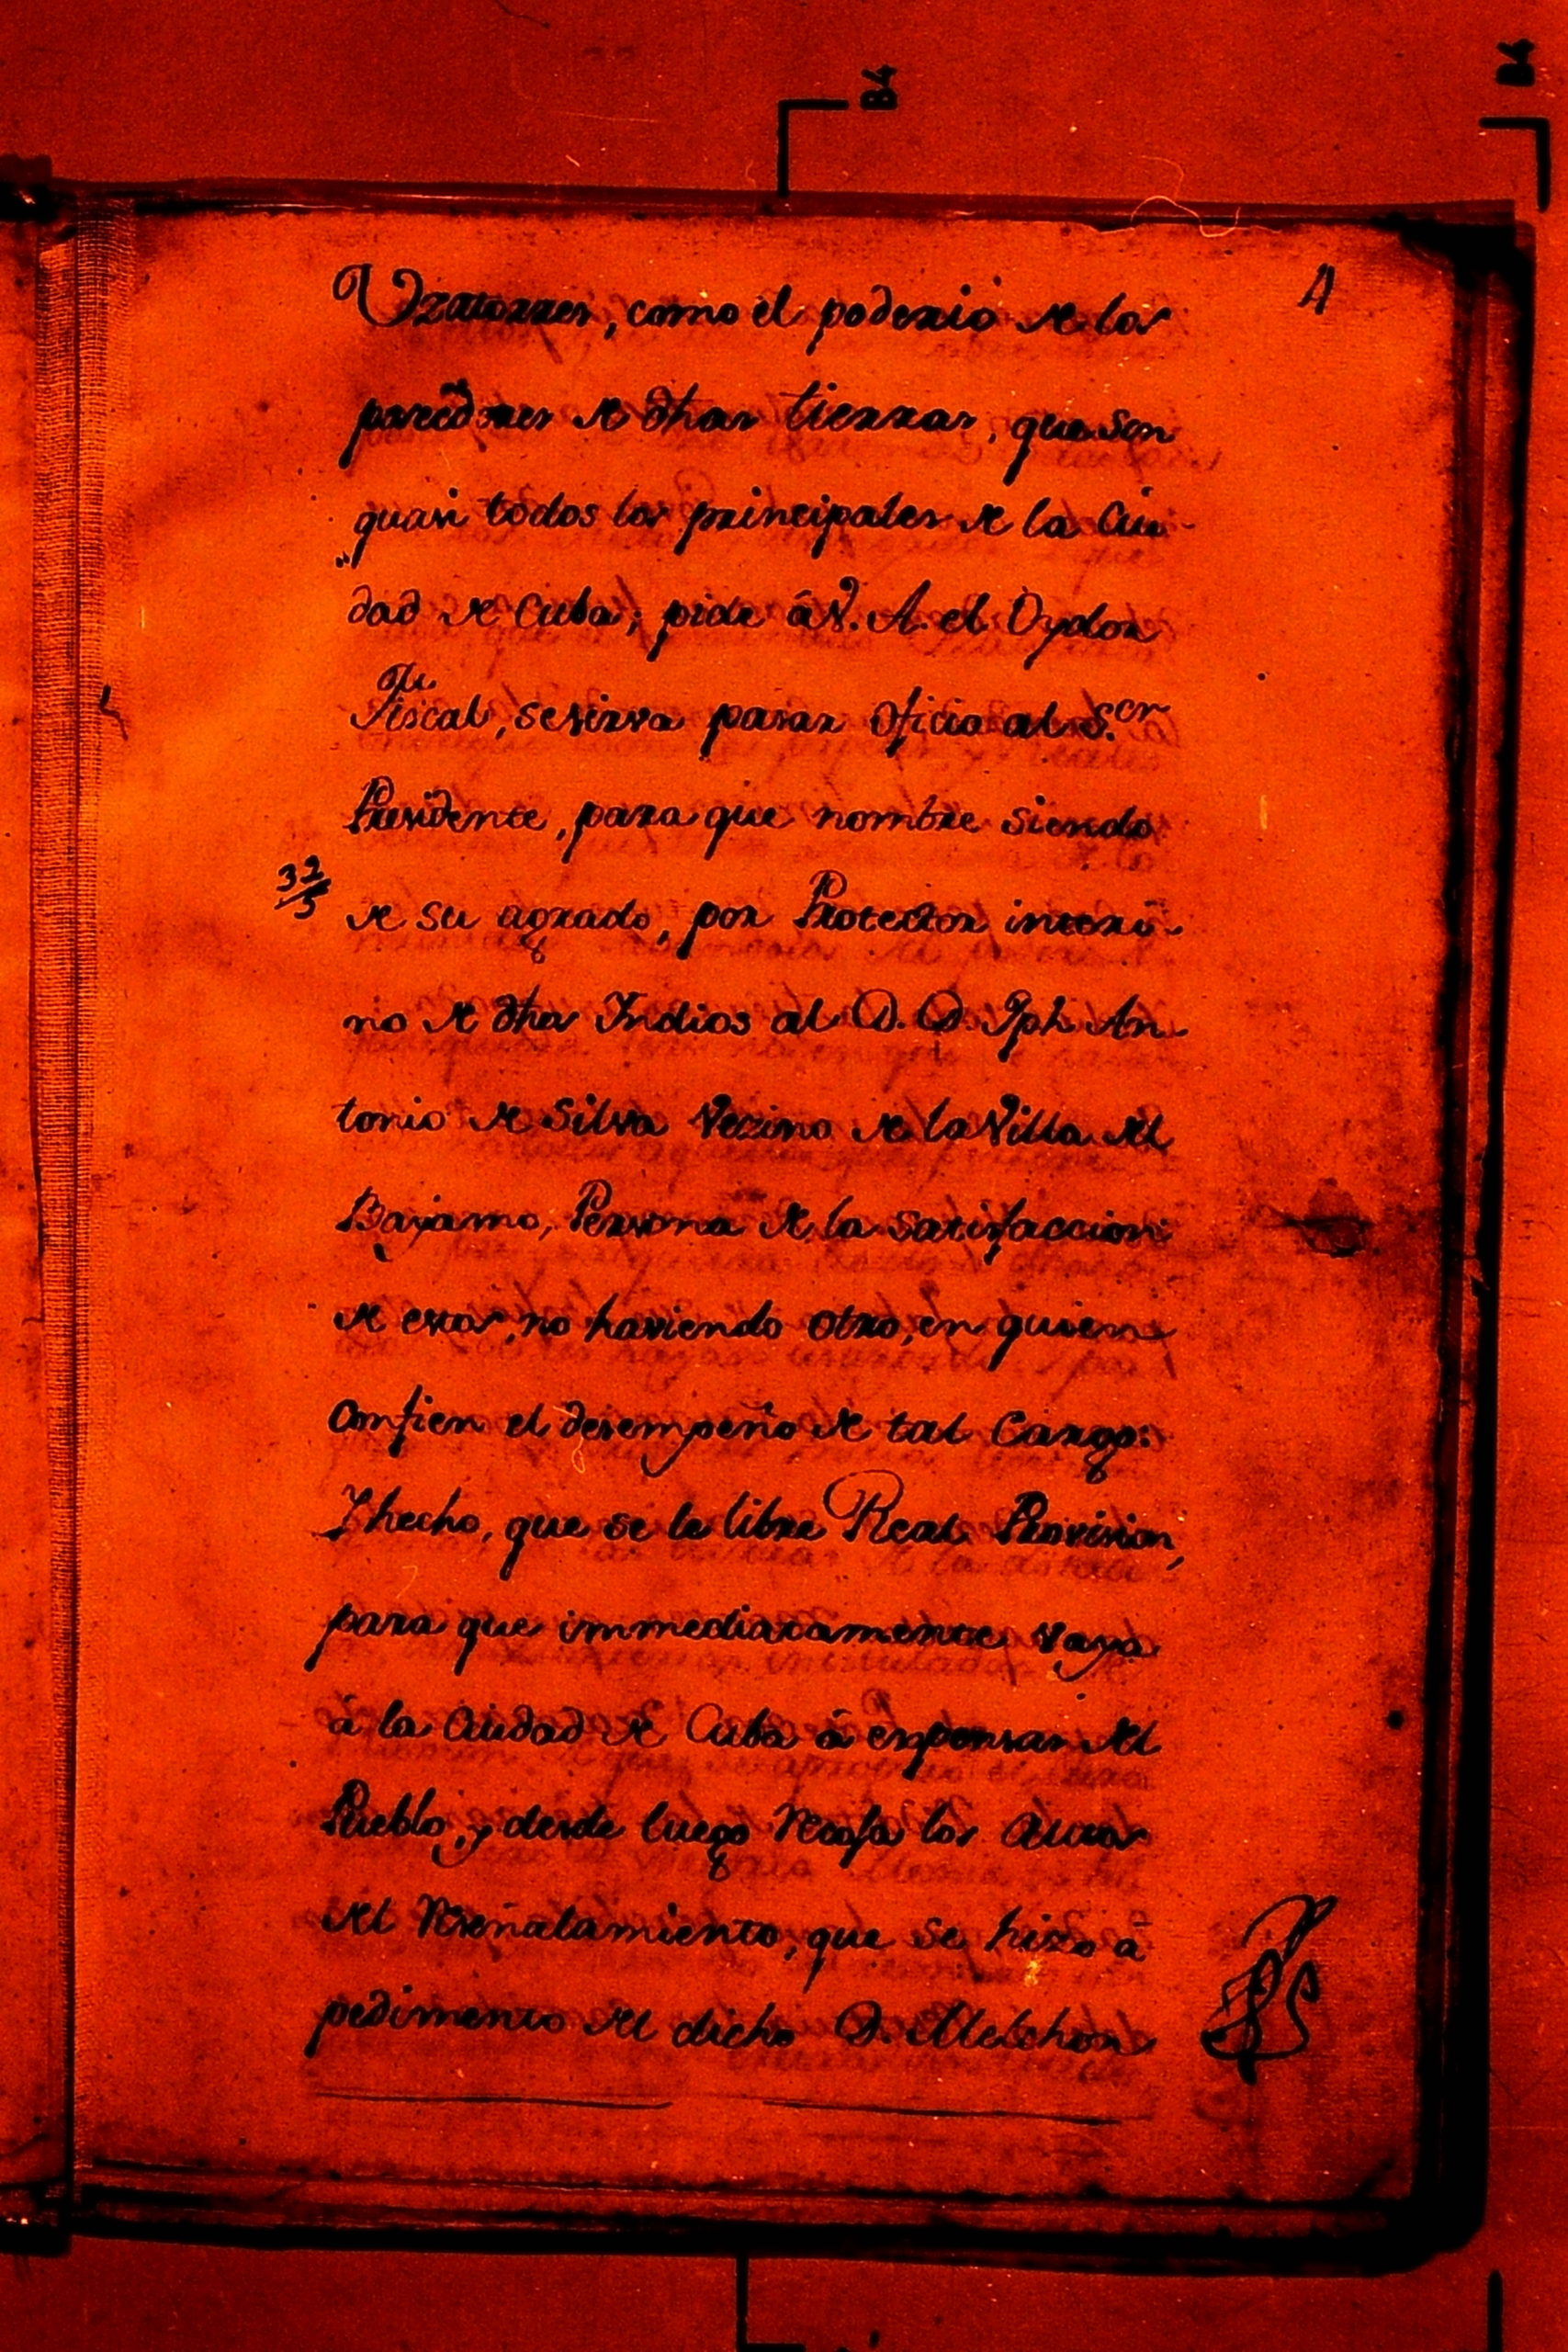 B4
B4
4
Vzatorres, como el poderio de los
de dhas tierras, que son
quasi todos los principales de la Ciu-
dad de Cuba; pide á V. A. el Oydor
Fiscal, se sirva pasar Oficio al S.or
Presidente, para que nombre siendo
32/5
de su agrado, por Protector interi-
no de dhos Indios al D. D. Jph An-
tonio de Silva Vezino de la Villa del
Bayamo, Persona de la satisfaccion
de estos, no haviendo otro, en quien
confien el desempeño de tal Cargo:
Y hecho, que se le libre Real Provision,
para que immediatamente vaya
á la Ciudad de Cuba á expensas del
Pueblo, y desde luego recoja los Autos
del Reseñalamiento, que se hizo á
pedimento del dicho D. Melchor